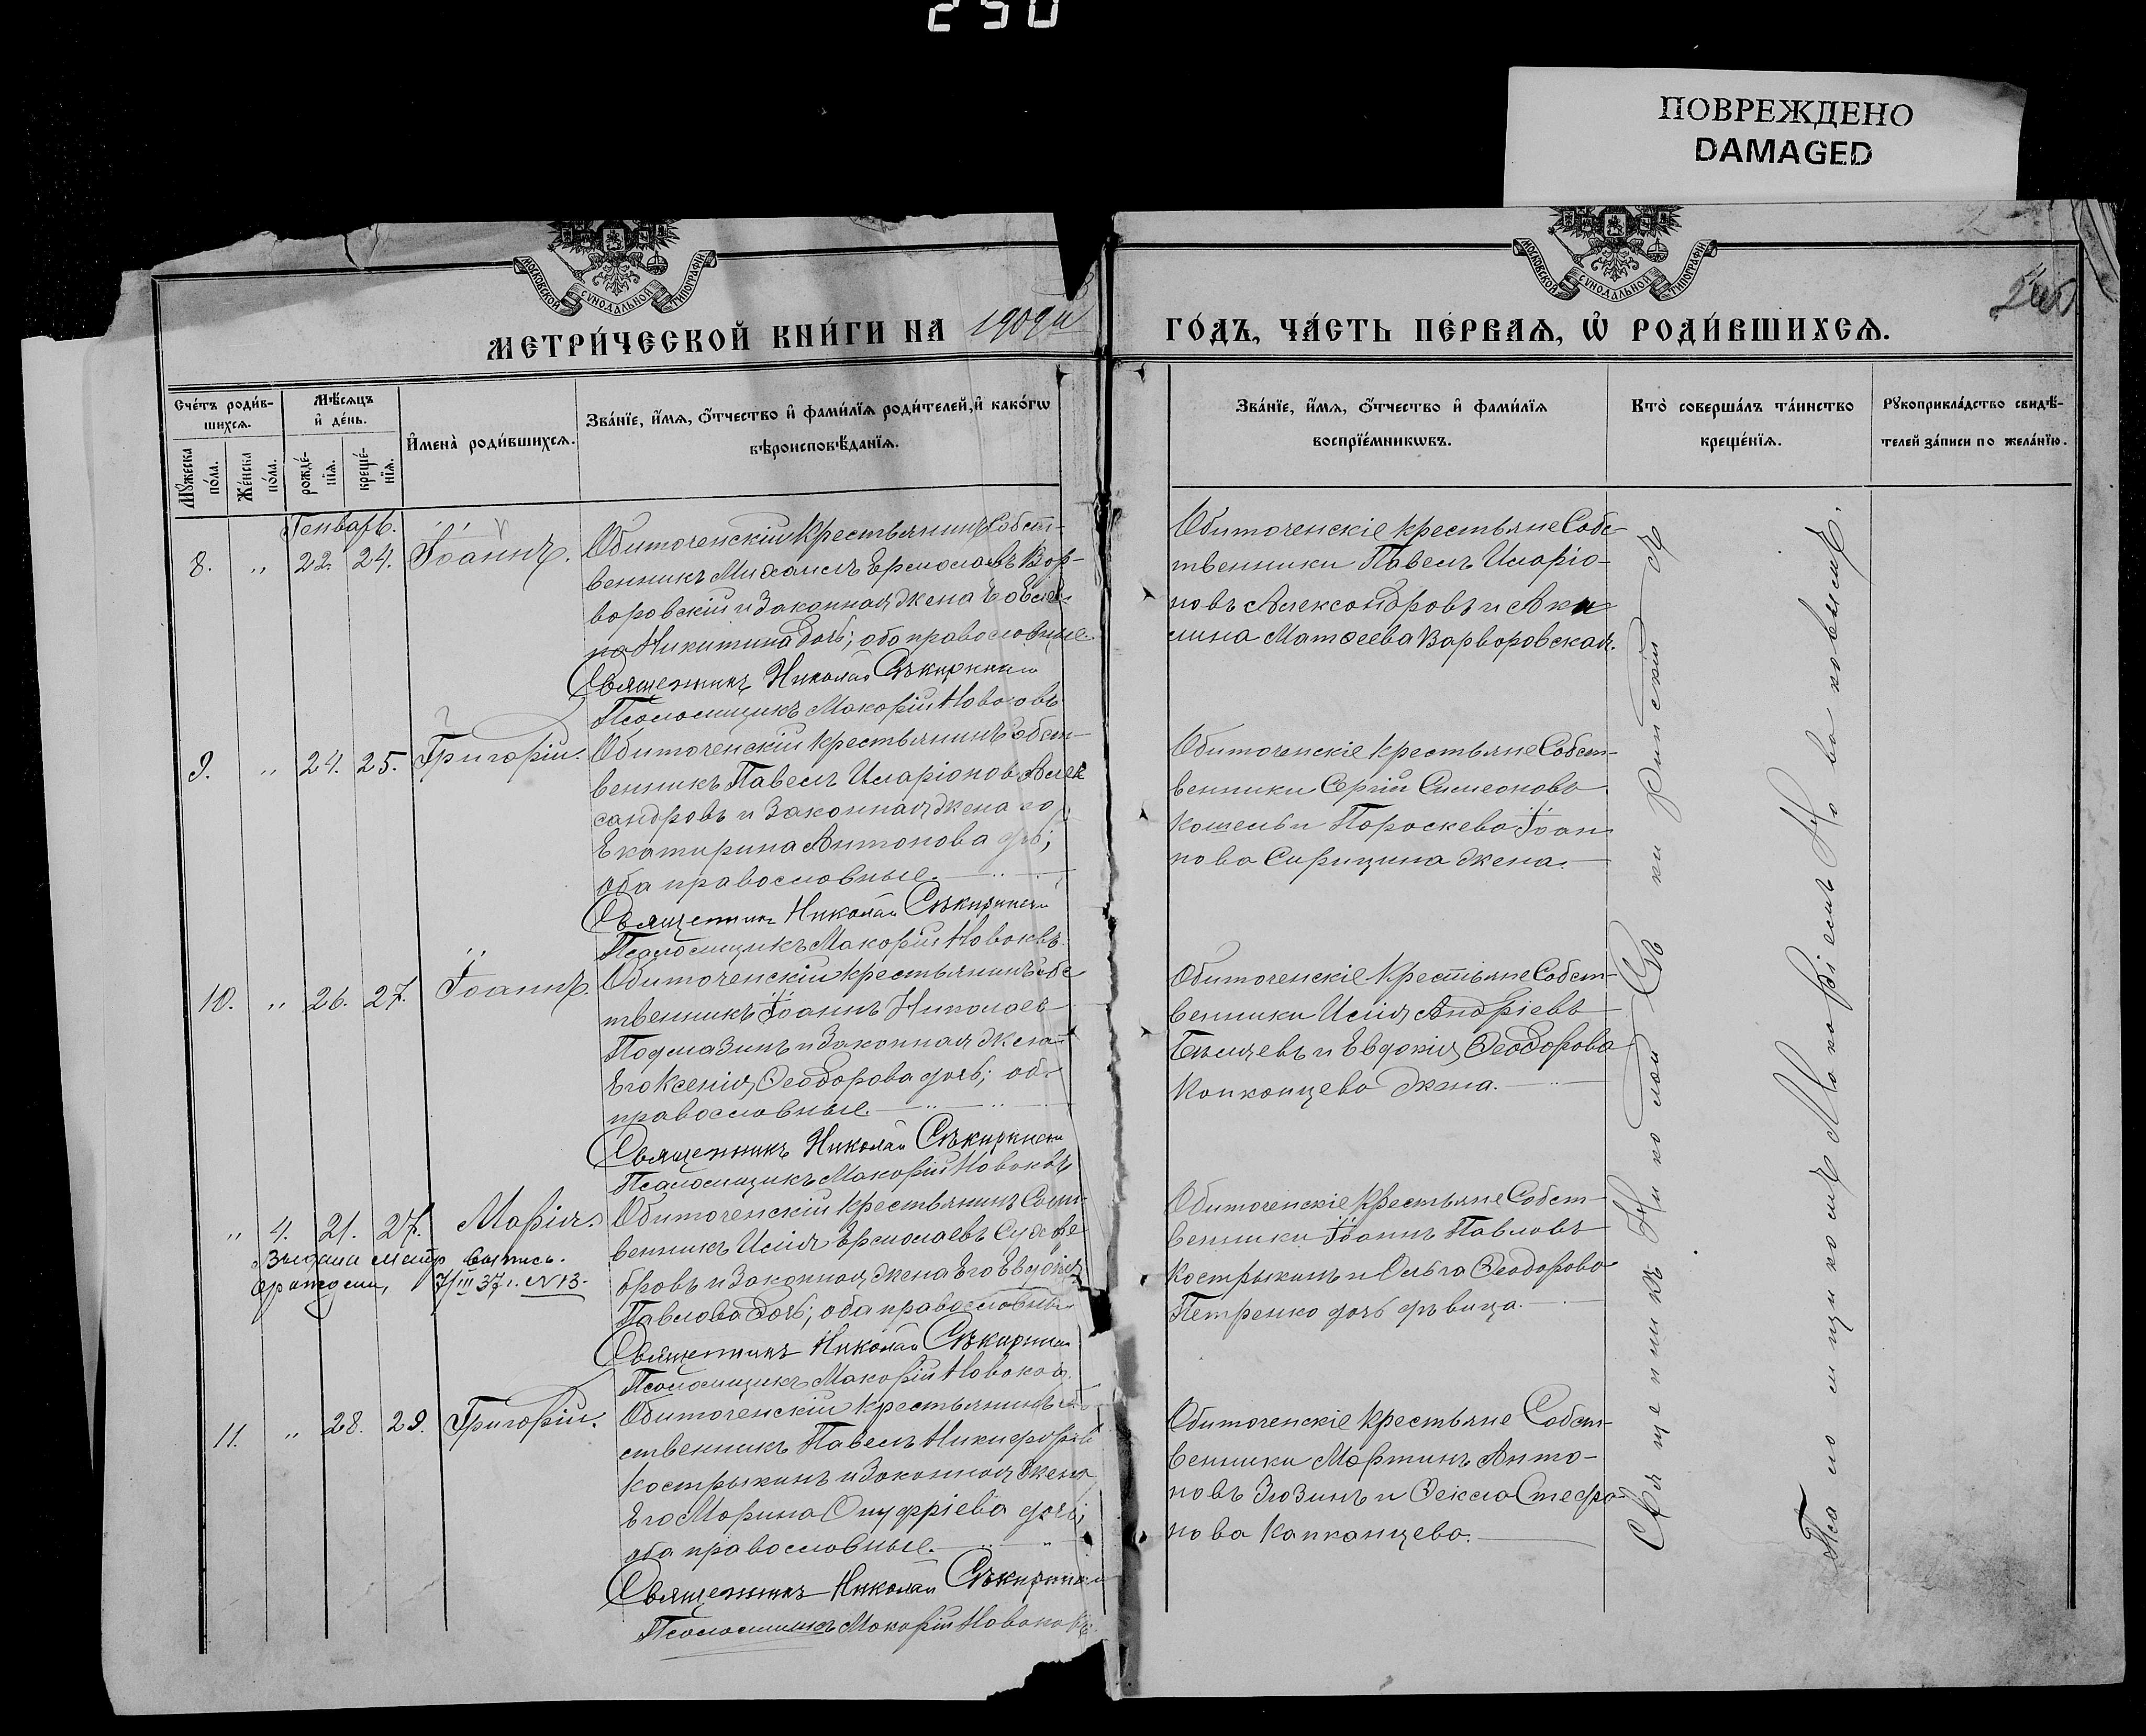 250
ПОВРЕЖДЕНО
DAMAGED
МОСКОВСКОЙ СѴНОДАЛЬНОЙ ТИПОГРАФІИ
МОСКОВСКОЙ СѴНОДАЛЬНОЙ ТИПОГРАФІИ
МЕТРИ́ЧЕСКОЙ КНИ́ГИ НА 1909й
ГО́ДЪ, ЧА́СТЬ ПЕ́РВАЯ, Ѡ҆ РОДИ́ВШИХСЯ.
Сче́тъ роди́вшихся.
Мѣ́сяцъ и҆ де́нь.
Мꙋ́жеска по́ла.
Же́нска по́ла.
рожде́нїя.
креще́нїя.
И҆мена̀ роди́вшихся.
Зва́нїе, и҆́мя, ѻ҆́тчество и҆ фами́лїя роди́телей, и҆ како́гѡ
вѣроисповѣ́данїя.
Зва́нїе, и҆́мя, ѻ҆́тчество и҆ фами́лїя
воспрїе́мникѡвъ.
Кто̀ соверша́лъ та́инство
креще́нїя.
Рꙋкоприкла́дство свидѣ́-
телей за́писи по жела́нїю.
Генварь.
8. " 22. 24. Іоаннъ.
Обиточенскій крестьянинъ Собст-
венникъ Михаилъ Ермолаевъ Вор-
воровскій и Законная жена
Никитина дочь; оба православные.
Священникъ Николай Сѣкиринскій
Псаломщикъ Макарій Новаковъ
Обиточенскіе крестьяне Собс-
твенники Павелъ Иларіо-
новъ Александровъ и Аки
лина Матѳеева Варворовская.
9. " 24. 25. Григорій.
Обиточенскій крестьянинъ Собст-
венникъ Павелъ Иларіоновъ Алек
сандровъ и Законная жена его
Екатирина Антонова дочь;
оба православные.
Священникъ Николай Сѣкиринскій
Псаломщикъ Макарій Новаковъ
Обиточенскіе крестьяне Собст-
венники Сергій Симеоновъ
Кошель и Пароскева Іоан
нова Сирицина жена.
10. " 26. 27. Іоаннъ.
Обиточенскій крестьянинъ Собс
твенникъ Іоаннъ Николаевъ
Подмазинъ и Законная жена
Его Ксенія Ѳеодорова дочь; оба
православные.
Священникъ Николай Сѣкиринскій
Псаломщикъ Макарій Новаковъ
Обиточенскіе Крестьяне Собст-
венники Илія Андріевъ
и Евдокія Ѳеодорова
Капканцева жена.
" 4. 21. 27. Марія.
Выдана метр выпись.
7/III 37 г. N 13.
Обиточенскій крестьянинъ Собст-
венникъ Илія Ермолаевъ
и Законная жена Его Евдокія
Павлова дочь; оба православные
Священникъ Николай Сѣкиринскій
Псаломщикъ Макарій Новаковъ
Обиточенскіе Крестьяне Собст-
венники Іоаннъ Павловъ
Кострыкинъ и Ольга Ѳеодорова
Петренко дочь дѣвица.
11. " 28. 29. Григорій.
Обиточенскій крестьянинъ Соб
ственникъ Павелъ Никифоровъ
Кострыкинъ и Законная жена
Его Марина Онуфріева дочь;
оба православные.
Священникъ Николай Сѣкиринскій
Псаломщикъ Макарій Новаковъ
Обиточенскіе Крестьяне Собст-
венники Мартинъ Анто-
новъ Зюзинъ и Ѳекла Стефа-
нова Капканцева.
Священникъ Николай Сѣкиринскій съ
Псаломщикомъ Макаріемъ Новаковымъ.